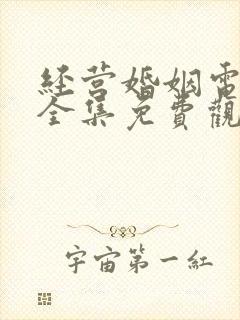 经营婚姻電
全集免費觀
宇宙第一紅